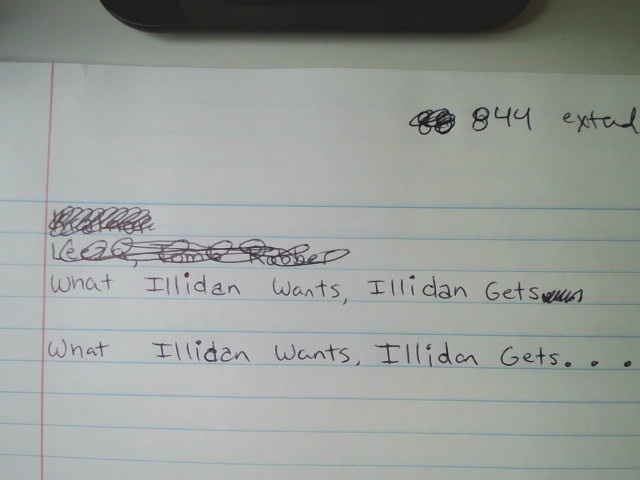 844 extend
What Illidan Wants, Illidan Gets
What Illidan Wants, Illidan Gets...